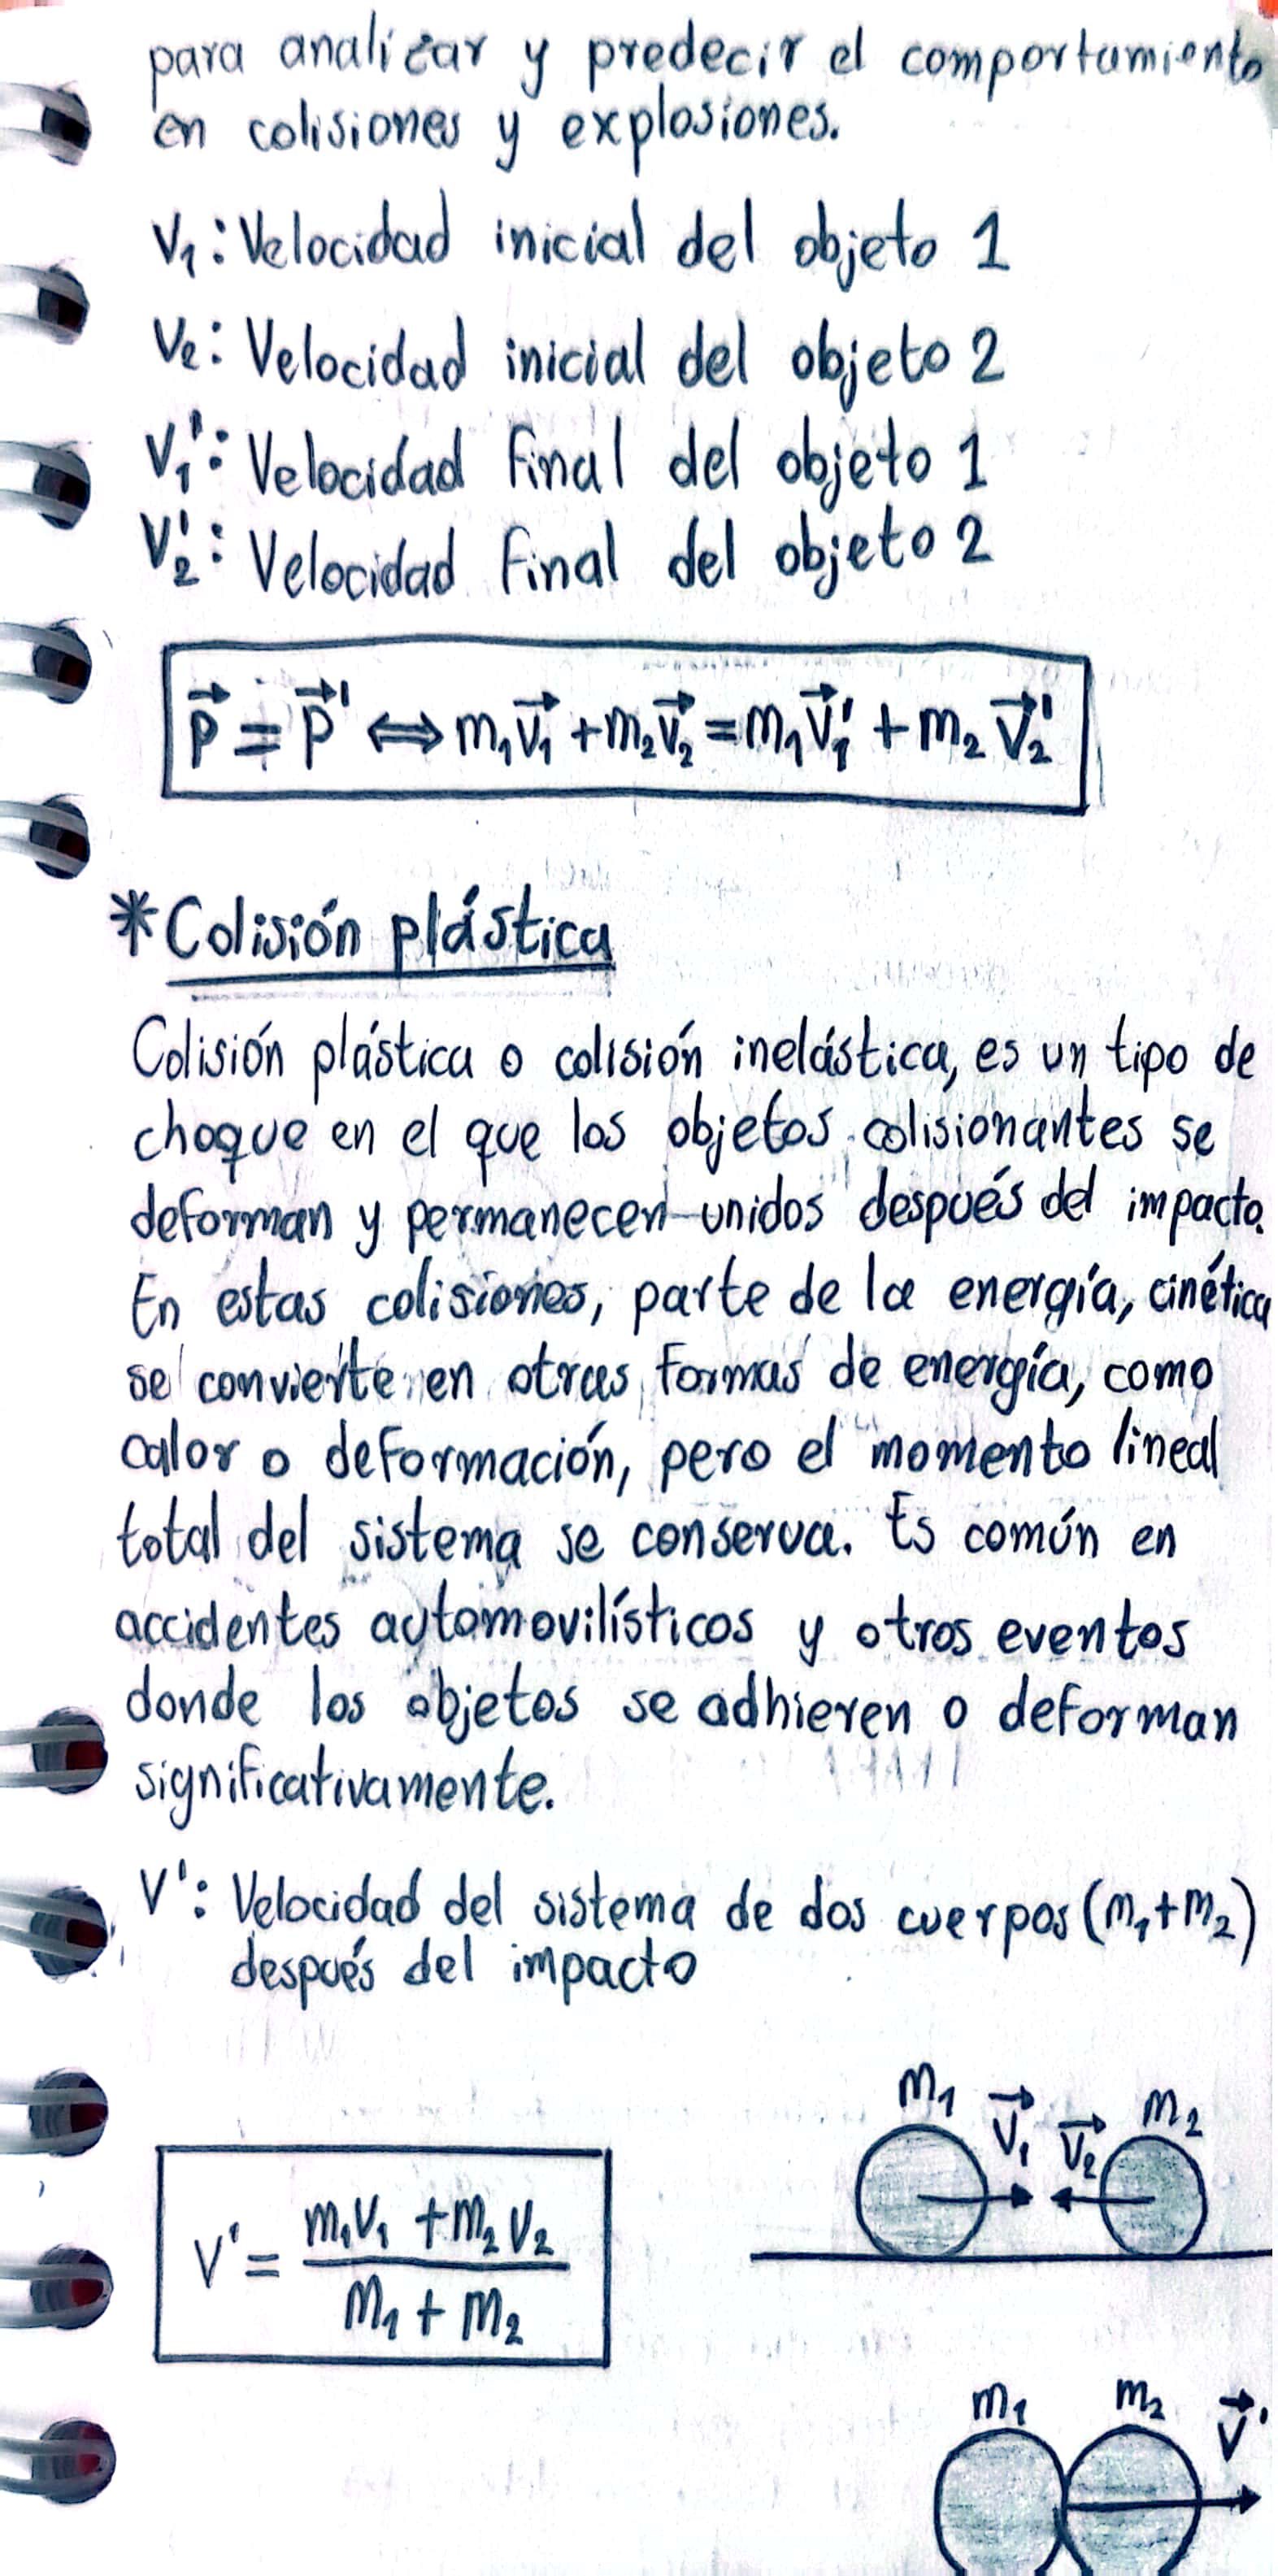 para analizar y predecir el comportamiento
en colisiones y explosiones.
V₁: Velocidad inicial del objeto 1
V₂: Velocidad inicial del objeto 2
V₁': Velocidad final del objeto 1
V₂': Velocidad final del objeto 2
p⃗ = p⃗' ⟺ m₁v⃗₁ + m₂v⃗₂ = m₁v⃗₁' + m₂v⃗₂'
*Colisión plástica
Colisión plástica o colisión inelástica, es un tipo de
choque en el que los objetos colisionantes se
deforman y permanecen unidos después del impacto.
En estas colisiones, parte de la energía, cinética
se convierte en otras formas de energía, como
calor o deformación, pero el momento lineal
total del sistema se conserva. Es común en
accidentes automovilísticos y otros eventos
donde los objetos se adhieren o deforman
significativamente.
V': Velocidad del sistema de dos cuerpos (m₁+m₂)
después del impacto
m₁ v⃗₁ v⃗₂ m₂
V' = (m₁v₁ + m₂v₂) / (m₁ + m₂)
m₁ m₂ v⃗'